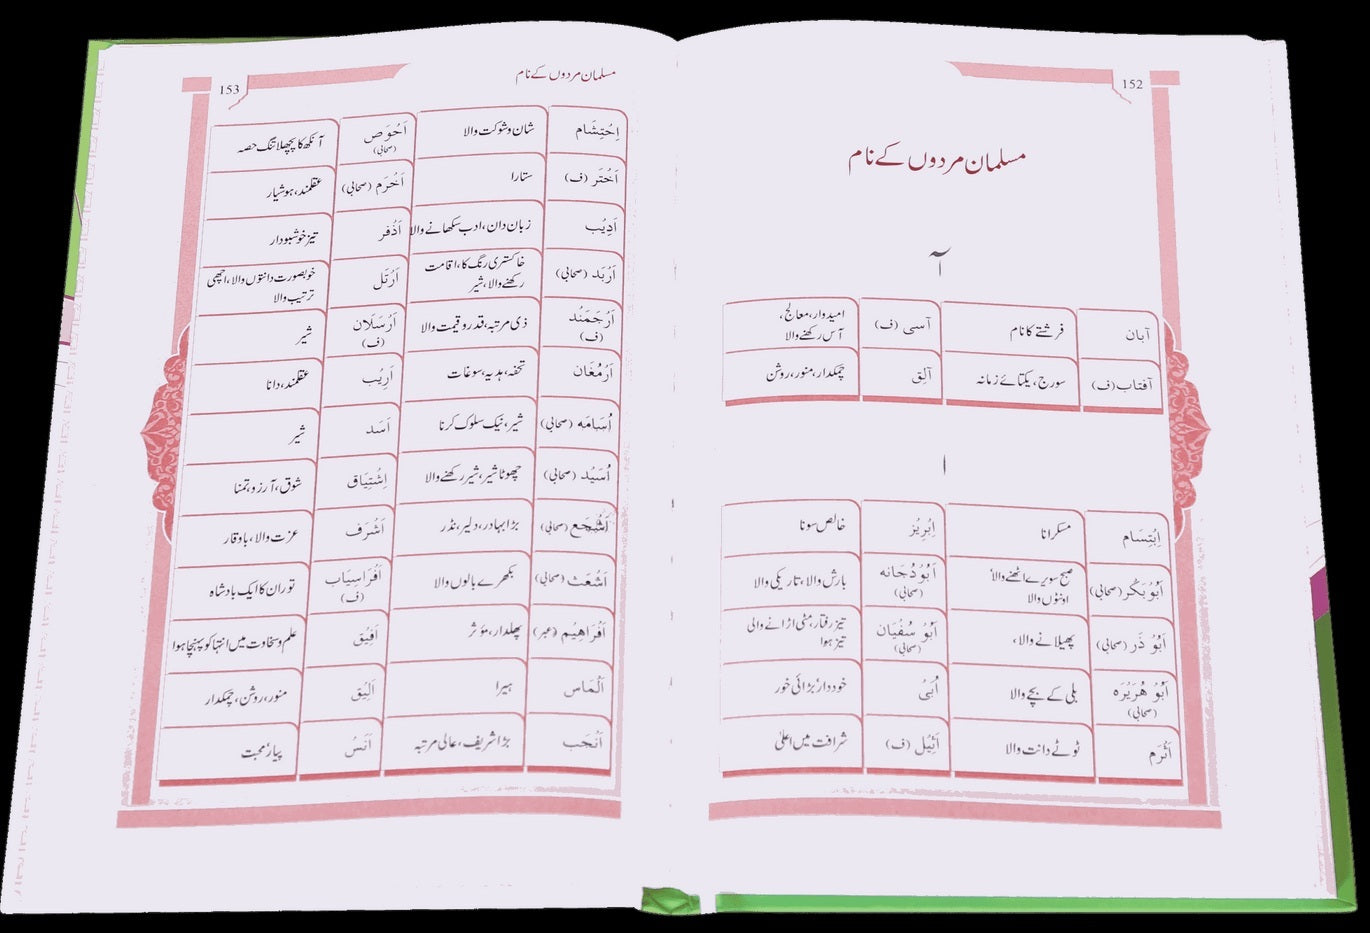 152
مسلمان مردوں کے نام
آ
آبان فرشتے کا نام آسی (ف) امیدوار، معالج،
آس رکھنے والا
آفتاب (ف) سورج، یکتائے زمانہ آلِق چمکدار، منور، روشن
ا
اِبْتِسَام مسکرانا اِبْرِیْز خالص سونا
اَبُوْبَکْر (صحابی) صبح سویرے اٹھنے والا، اَبُوْدُجَانہ بارش والا، تاریکی والا
اونٹوں والا (صحابی)
اَبُوْ ذَر (صحابی) پھیلانے والا، اَبُوْ سُفْیَان تیز رفتار، مٹی اڑانے والی
(صحابی) تیز ہوا
اَبُوْ ھُرَیْرَہ بلی کے بچے والا اُبَیْ خوددار، بڑائی خور
(صحابی)
اَثْرَم ٹوٹے دانت والا اَثِیْل (ف) شرافت میں اعلیٰ
153
مسلمان مردوں کے نام
اِحْتِشَام شان و شوکت والا اَحْوَص آنکھ کا پچھلا تنگ حصہ
(صحابی)
اَخْتَر (ف) ستارا اَخْرَم (صحابی) عقلمند، ہوشیار
اَدِیْب زبان دان، ادب سکھانے والا اَذْفَر تیز خوشبودار
اَرْبَد (صحابی) خاکستری رنگ کا، اقامت اَرْتَل خوبصورت دانتوں والا، اچھی
رکھنے والا، شیر ترتیب والا
اَرْجَمَنْد ذی مرتبہ، قدر و قیمت والا اَرْسَلَان شیر
(ف) (ف)
اَرْمُغَان تحفہ، ہدیہ، سوغات اَرِیْب عقلمند، دانا
اُسَامَہ (صحابی) شیر، نیک سلوک کرنا اَسَد شیر
اُسَیْد (صحابی) چھوٹا شیر، شیر رکھنے والا اِشْتِیَاق شوق، آرزو، تمنا
اَشْجَع (صحابی) بڑا بہادر، دلیر، نڈر اَشْرَف عزت والا، باوقار
اَشْعَث (صحابی) بکھرے بالوں والا اَفْرَاسِیَاب توران کا ایک بادشاہ
(ف)
اَفْرَاھِیْم (عبر) پھلدار، مؤثر اَفِیْق علم و سخاوت میں انتہا کو پہنچا ہوا
اَلْمَاس ہیرا اَلِیْق منور، روشن، چمکدار
اَنْجَب بڑا شریف، عالی مرتبہ اَنَسْ پیار، محبت